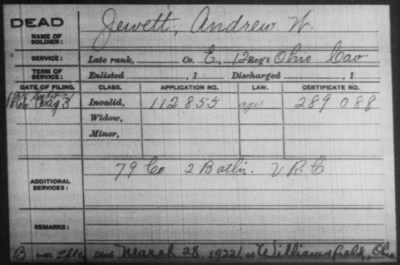 DEAD
NAME OF SOLDIER: Jewett, Andrew W.
SERVICE: Late rank, Co. E, 12 Reg't Ohio Cav
TERM OF SERVICE: Enlisted , 1 Discharged , 1
DATE OF FILING. CLASS. APPLICATION NO. LAW. CERTIFICATE NO.
1866 Aug 3 Invalid, 112855 289 088
Widow,
Minor,
ADDITIONAL SERVICES: 79 Co 2 Batln. V R C
REMARKS:
Died March 28, 1922, at Williamsfield, Ohio